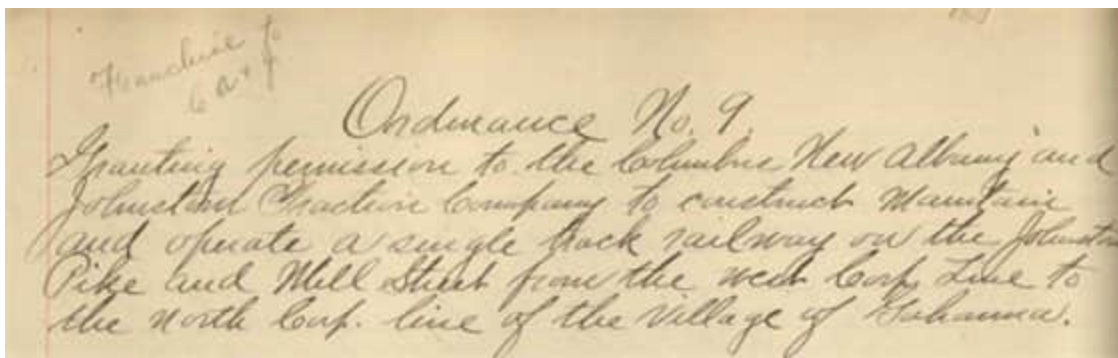 Franchise to
C A & J
Ordinance No. 9.
Granting permission to the Columbus New Albany and
Johnstown Traction Company to construct Maintain
and operate a single track railway on the Johnstown
Pike and Mill Street from the west Corp. Line to
the north Corp. line of the Village of Gahanna.